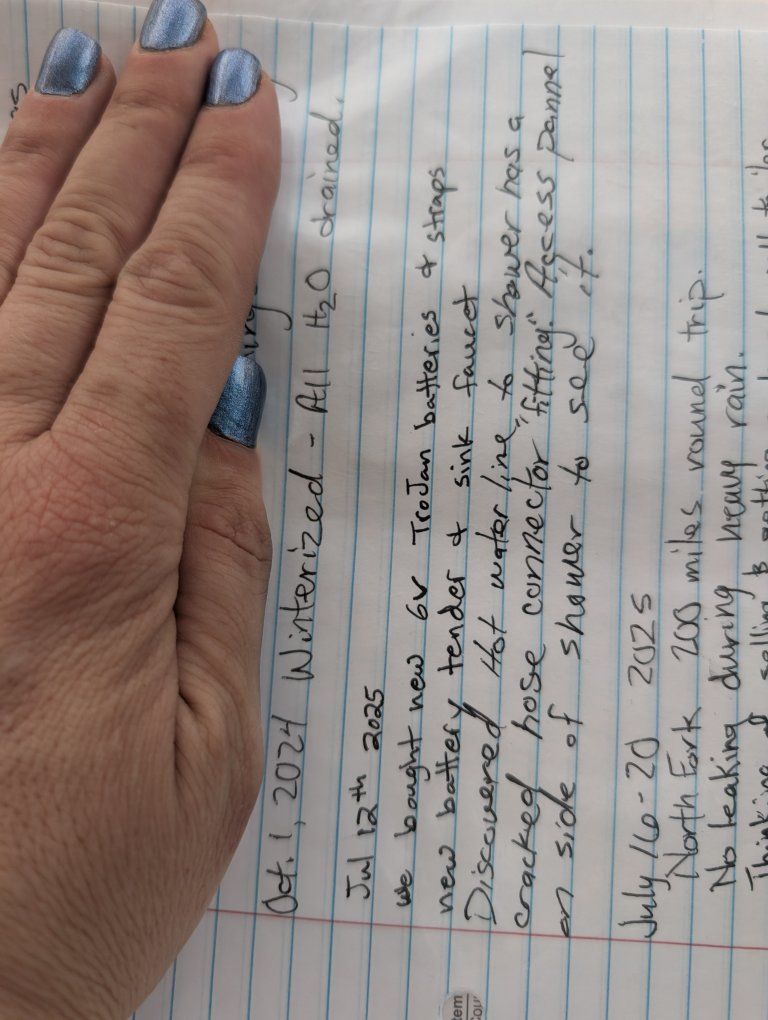 Oct. 1, 2024 Winterized - All H2O drained.
Jul 12th 2025
we bought new 6v TroJan batteries & straps
new battery tender & sink faucet
Discovered Hot water line to shower has a
cracked hose connector "fitting." Access pannel
on side of shower to see it.
July 16-20 2025
North Fork 200 miles round trip.
No leaking during heavy rain.
Thinking of selling &
tem